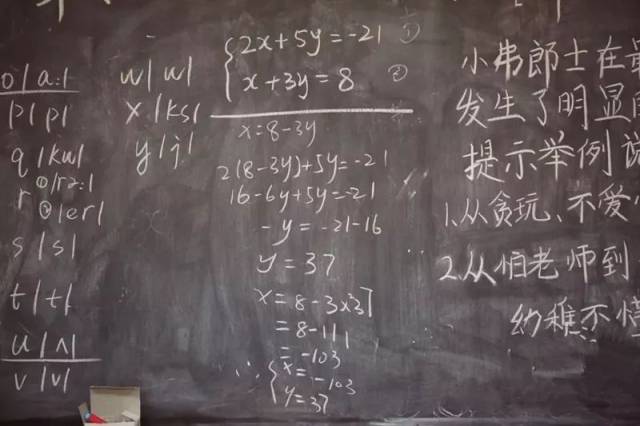 o/a:/
p/p/
q/kw/
r ①/rz:/
②/er/
s/s/
t/t/
u/ʌ/
v/v/
w/w/
x/ks/
y/j/
2x+5y=-21 ①
x+3y=8 ②
x=8-3y
2(8-3y)+5y=-21
16-6y+5y=-21
-y=-21-16
y=37
x=8-3×37
=8-111
=-103
∴{x=-103
y=37
小弗郎士在最
发生了明显
提示举例说
1.从贪玩、不爱
2.从怕老师到
幼稚不懂